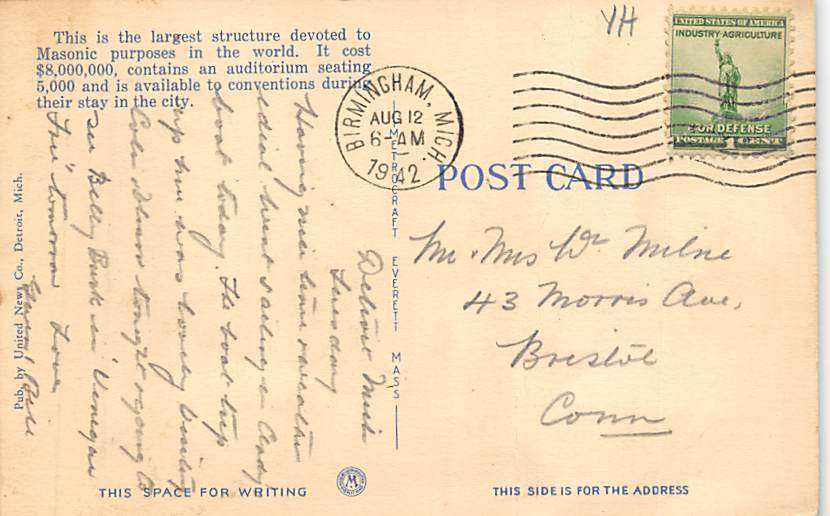 This is the largest structure devoted to
Masonic purposes in the world. It cost
$8,000,000, contains an auditorium seating
5,000 and is available to conventions during
their stay in the city.
YH
UNITED STATES OF AMERICA
INDUSTRY-AGRICULTURE
FOR DEFENSE
POSTAGE 1 CENT
BIRMINGHAM, MICH.
AUG 12
6-AM
1942
POST CARD
Mr. Mrs Wm Milne
43 Morris Ave,
Bristol
Conn
Detroit Mich
Tuesday
Having nice time weather
ideal went sailing in
boat today. The boat trip
up here was lovely
tonight & going to
see Billy
tomorrow Love
Bill
METROCRAFT EVERETT MASS
Pub. by United News Co., Detroit, Mich.
THIS SPACE FOR WRITING
M
THIS SIDE IS FOR THE ADDRESS